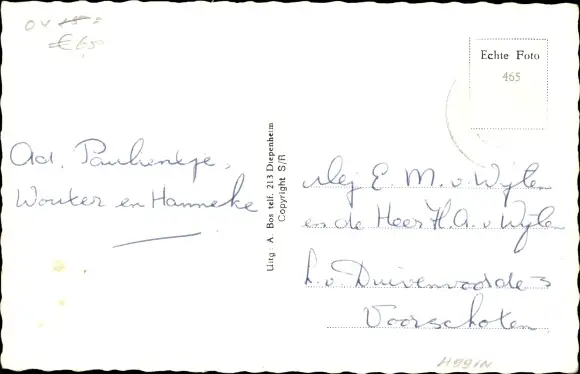 € 6,50
Echte Foto
465
Ad, Paulientje,
Wouter en Hanneke
Uitg: A. Bos telf. 213 Diepenheim
Copyright S/R
Mej E. M. v. Wijlen
en de Heer H. A. v. Wijlen
L. v. Duivenvoorde 3
Voorschoten